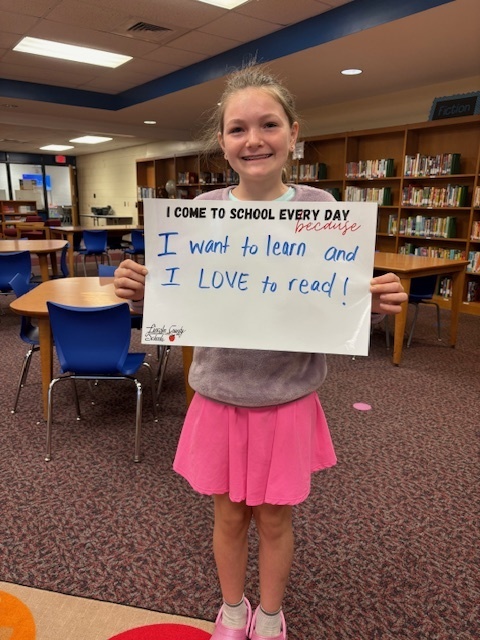 Fiction
I COME TO SCHOOL EVERY DAY
because
I want to learn and
I LOVE to read!
Lincoln County
Schools